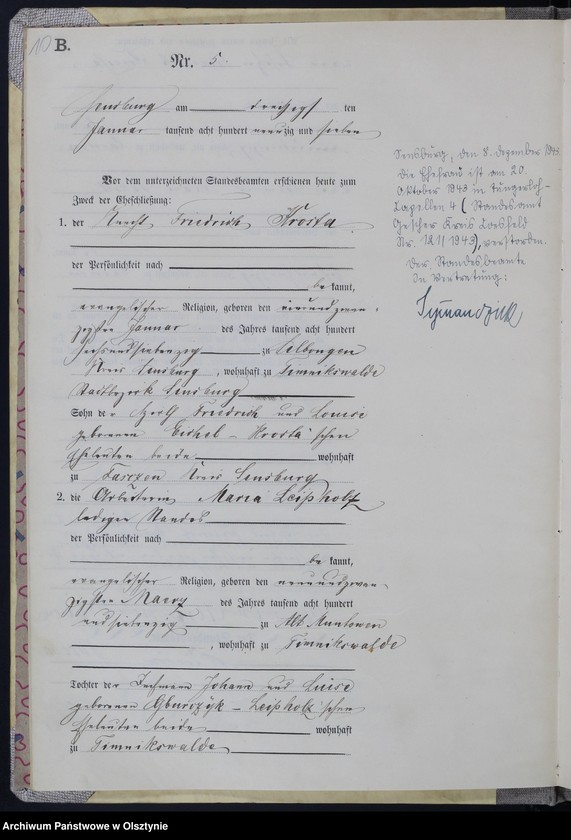 10 B.
Nr. 5.
Sensburg am dreißigsten
Januar tausend acht hundert neunzig und sieben
Vor dem unterzeichneten Standesbeamten erschienen heute zum
Zweck der Eheschließung:
1. der Knecht Friedrich Krosta
der Persönlichkeit nach
be kannt,
evangelischer Religion, geboren den vierundzwan-
zigsten Januar des Jahres tausend acht hundert
sechsundsiebenzig zu Selbongen
Kreis Sensburg, wohnhaft zu Timnikswalde
Stadtbezirk Sensburg
Sohn der Friedrich und Louise
geborenen Krosta'schen
Eheleuten beide wohnhaft
zu Kreis Sensburg
2. die Maria Leißholz
ledigen Standes
der Persönlichkeit nach
be kannt,
evangelischer Religion, geboren den neunundzwan-
zigsten Maerz des Jahres tausend acht hundert
undsiebenzig zu Alt Muntowen
, wohnhaft zu Timnikswalde
Tochter der Johann und Luise
geborenen Gburczyk - Leißholz'schen
Eheleuten beide wohnhaft
zu Timnikswalde
Sensburg, den 8. Dezember 194
Die Ehefrau ist am 20.
Oktober 1943 in Tungerloh-
Capellen 4 (Standesamt
Gescher Kreis Coesfeld
Nr. 1943), verstorben.
Der Standesbeamte
In Vertretung:
Archiwum Państwowe w Olsztynie